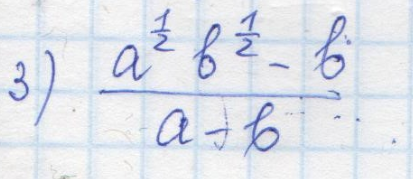 3) (a^{1/2} b^{1/2} - b) / (a + b)